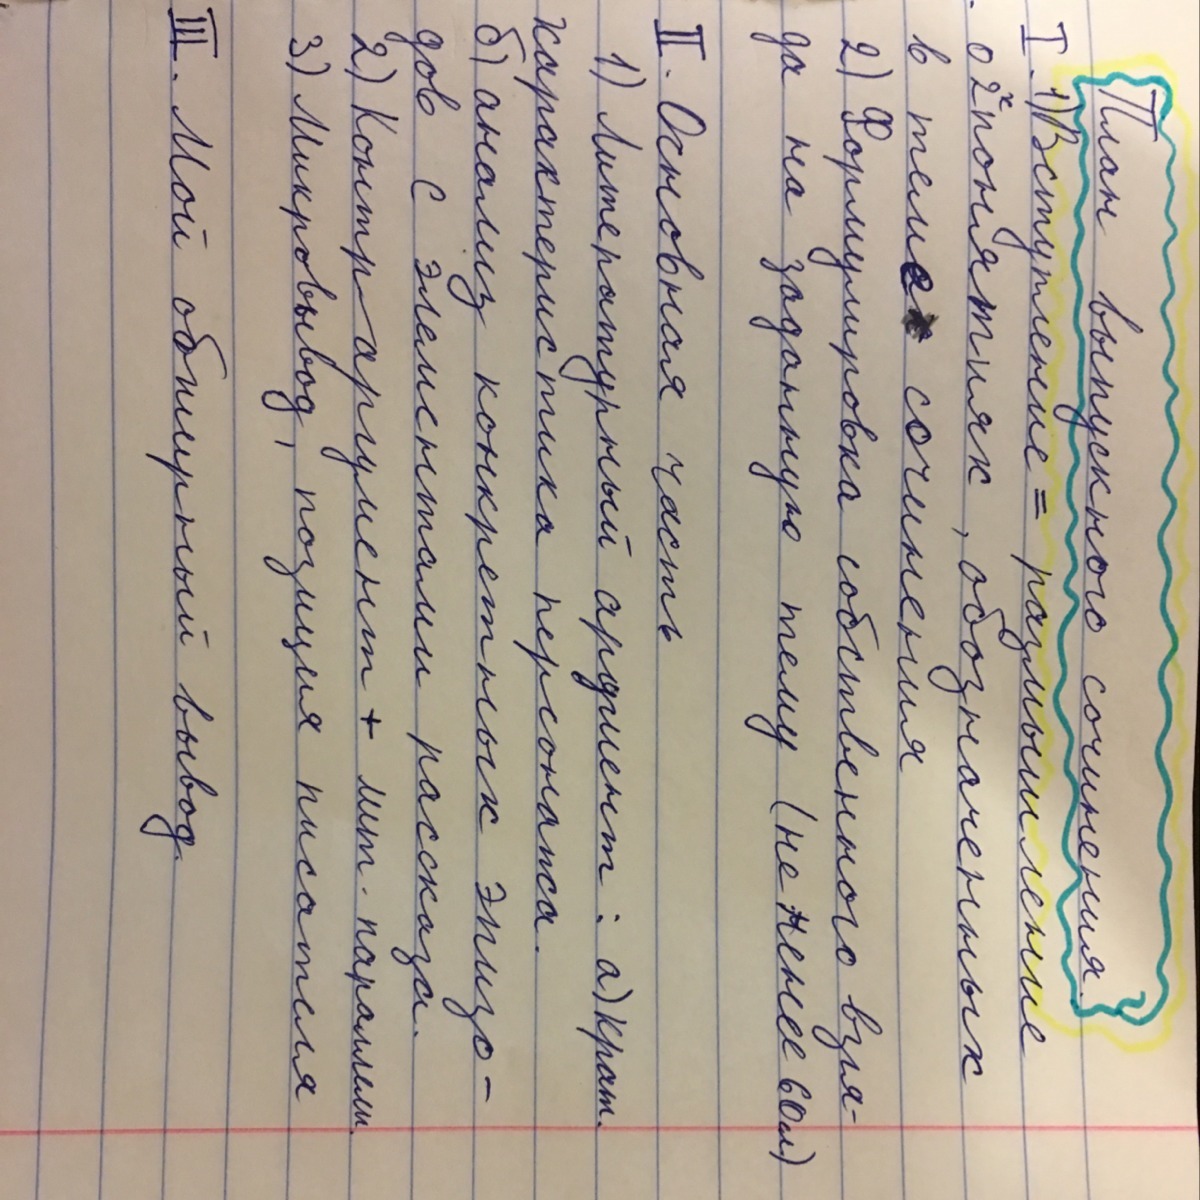 План выпускного сочинения.
I. 1) Вступление = размышление
о 2х понятиях, обозначенных
в теме сочинения
2) Формулировка собственного взгля-
да на заданную тему (не менее 60
II. Основная часть
1) Литературный аргумент: а) крат.
характеристика персонажа.
б) анализ конкретных эпизо-
дов с элементами рассказа.
2) Контр-аргумент + лит. параллели.
3) Микровывод, позиция писателя
III. Мой обширный вывод.